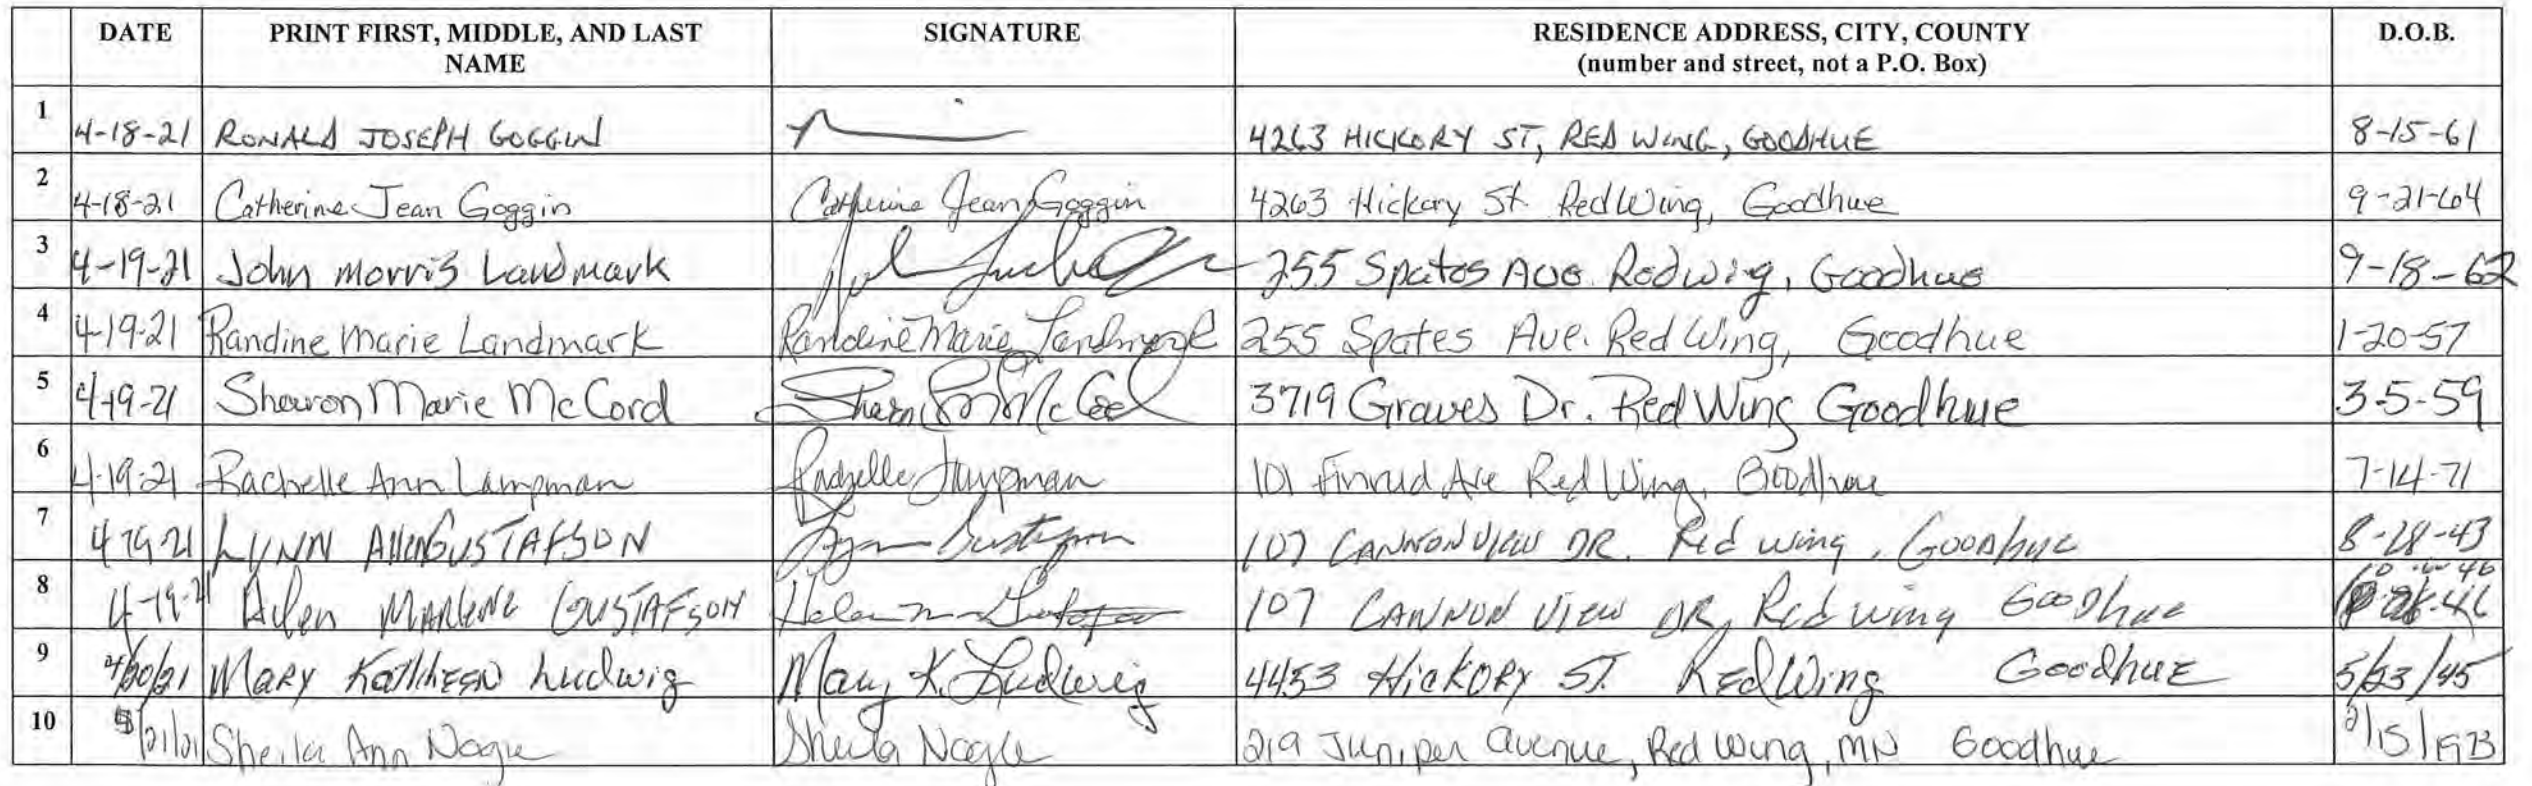 DATE PRINT FIRST, MIDDLE, AND LAST NAME SIGNATURE RESIDENCE ADDRESS, CITY, COUNTY (number and street, not a P.O. Box) D.O.B.
1 4-18-21 RONALD JOSEPH GOGGIN 4263 HICKORY ST, RED WING, GOODHUE 8-15-61
2 4-18-21 Catherine Jean Goggin Catherine Jean Goggin 4263 Hickory St Red Wing, Goodhue 9-21-64
3 4-19-21 John Morris Landmark 255 Spates Ave. Redwing, Goodhue 9-18-62
4 4-19-21 Randine Marie Landmark Randine Marie Landmark 255 Spates Ave. Red Wing, Goodhue 1-20-57
5 4-19-21 Sharon Marie McCord Sharon McCord 3719 Graves Dr. Red Wing Goodhue 3-5-59
6 4-19-21 Rachelle Ann Lampman Rachelle Lampman 101 Ave Red Wing, Goodhue 7-14-71
7 4-19-21 LYNN Allen GUSTAFSON Lynn Gustafson 107 CANNON VIEW DR. Red wing, Goodhue 8-28-43
8 4-19-21 MARLENE GUSTAFSON Helen M Gustafson 107 CANNON VIEW DR, Red wing Goodhue
9 4/20/21 MARY KATHLEEN Ludwig Mary K. Ludwig 4453 HICKORY ST. Red Wing Goodhue 5/23/45
10 /21/21 Sheila Ann Nagle Sheila Nagle 219 Juniper Avenue, Red Wing, MN Goodhue 2/15/1973